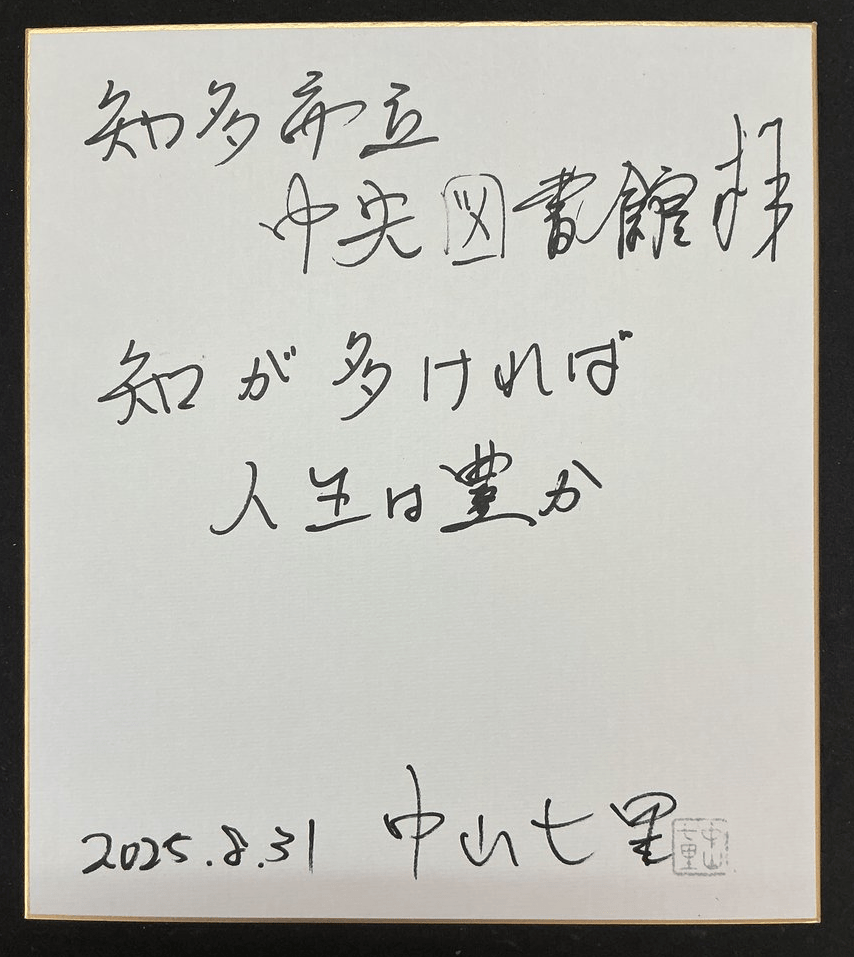 知多市立
中央図書館様
知が多ければ
人生は豊か
2025.8.31 中山七里
中山
七里